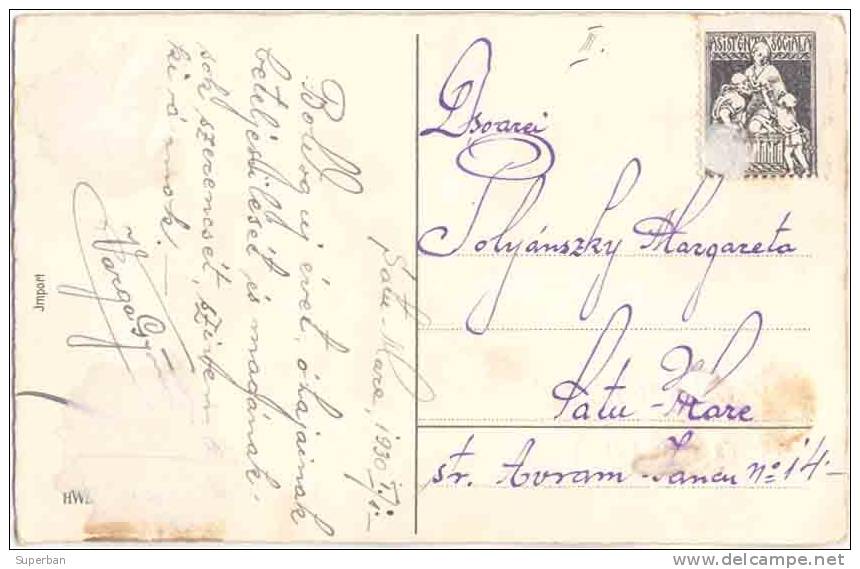 Satu-Mare, 1930 I/1.
Boldog uj évet, óhajainak
beteljesülését és magának
sok szerencsét, szivem
kivánok. —
Varga
Jmport
HWB
II.
ASISTENȚA SOCIALA
Dşoarei
Polyánszky Margareta
Satu-Mare
str. Avram-Iancu No 14.-
Superban
www.delcampe.net